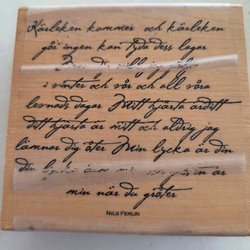 Kärleken kommer och kärleken
går ingen kan tyda dess lagar
i vinter och vår och all våra
levnads dagar Mitt hjärta är ditt
ditt hjärta är mitt och aldrig jag
lämnar dig åter Min lycka är din
din är min
min när du gråter
NILS FERLIN